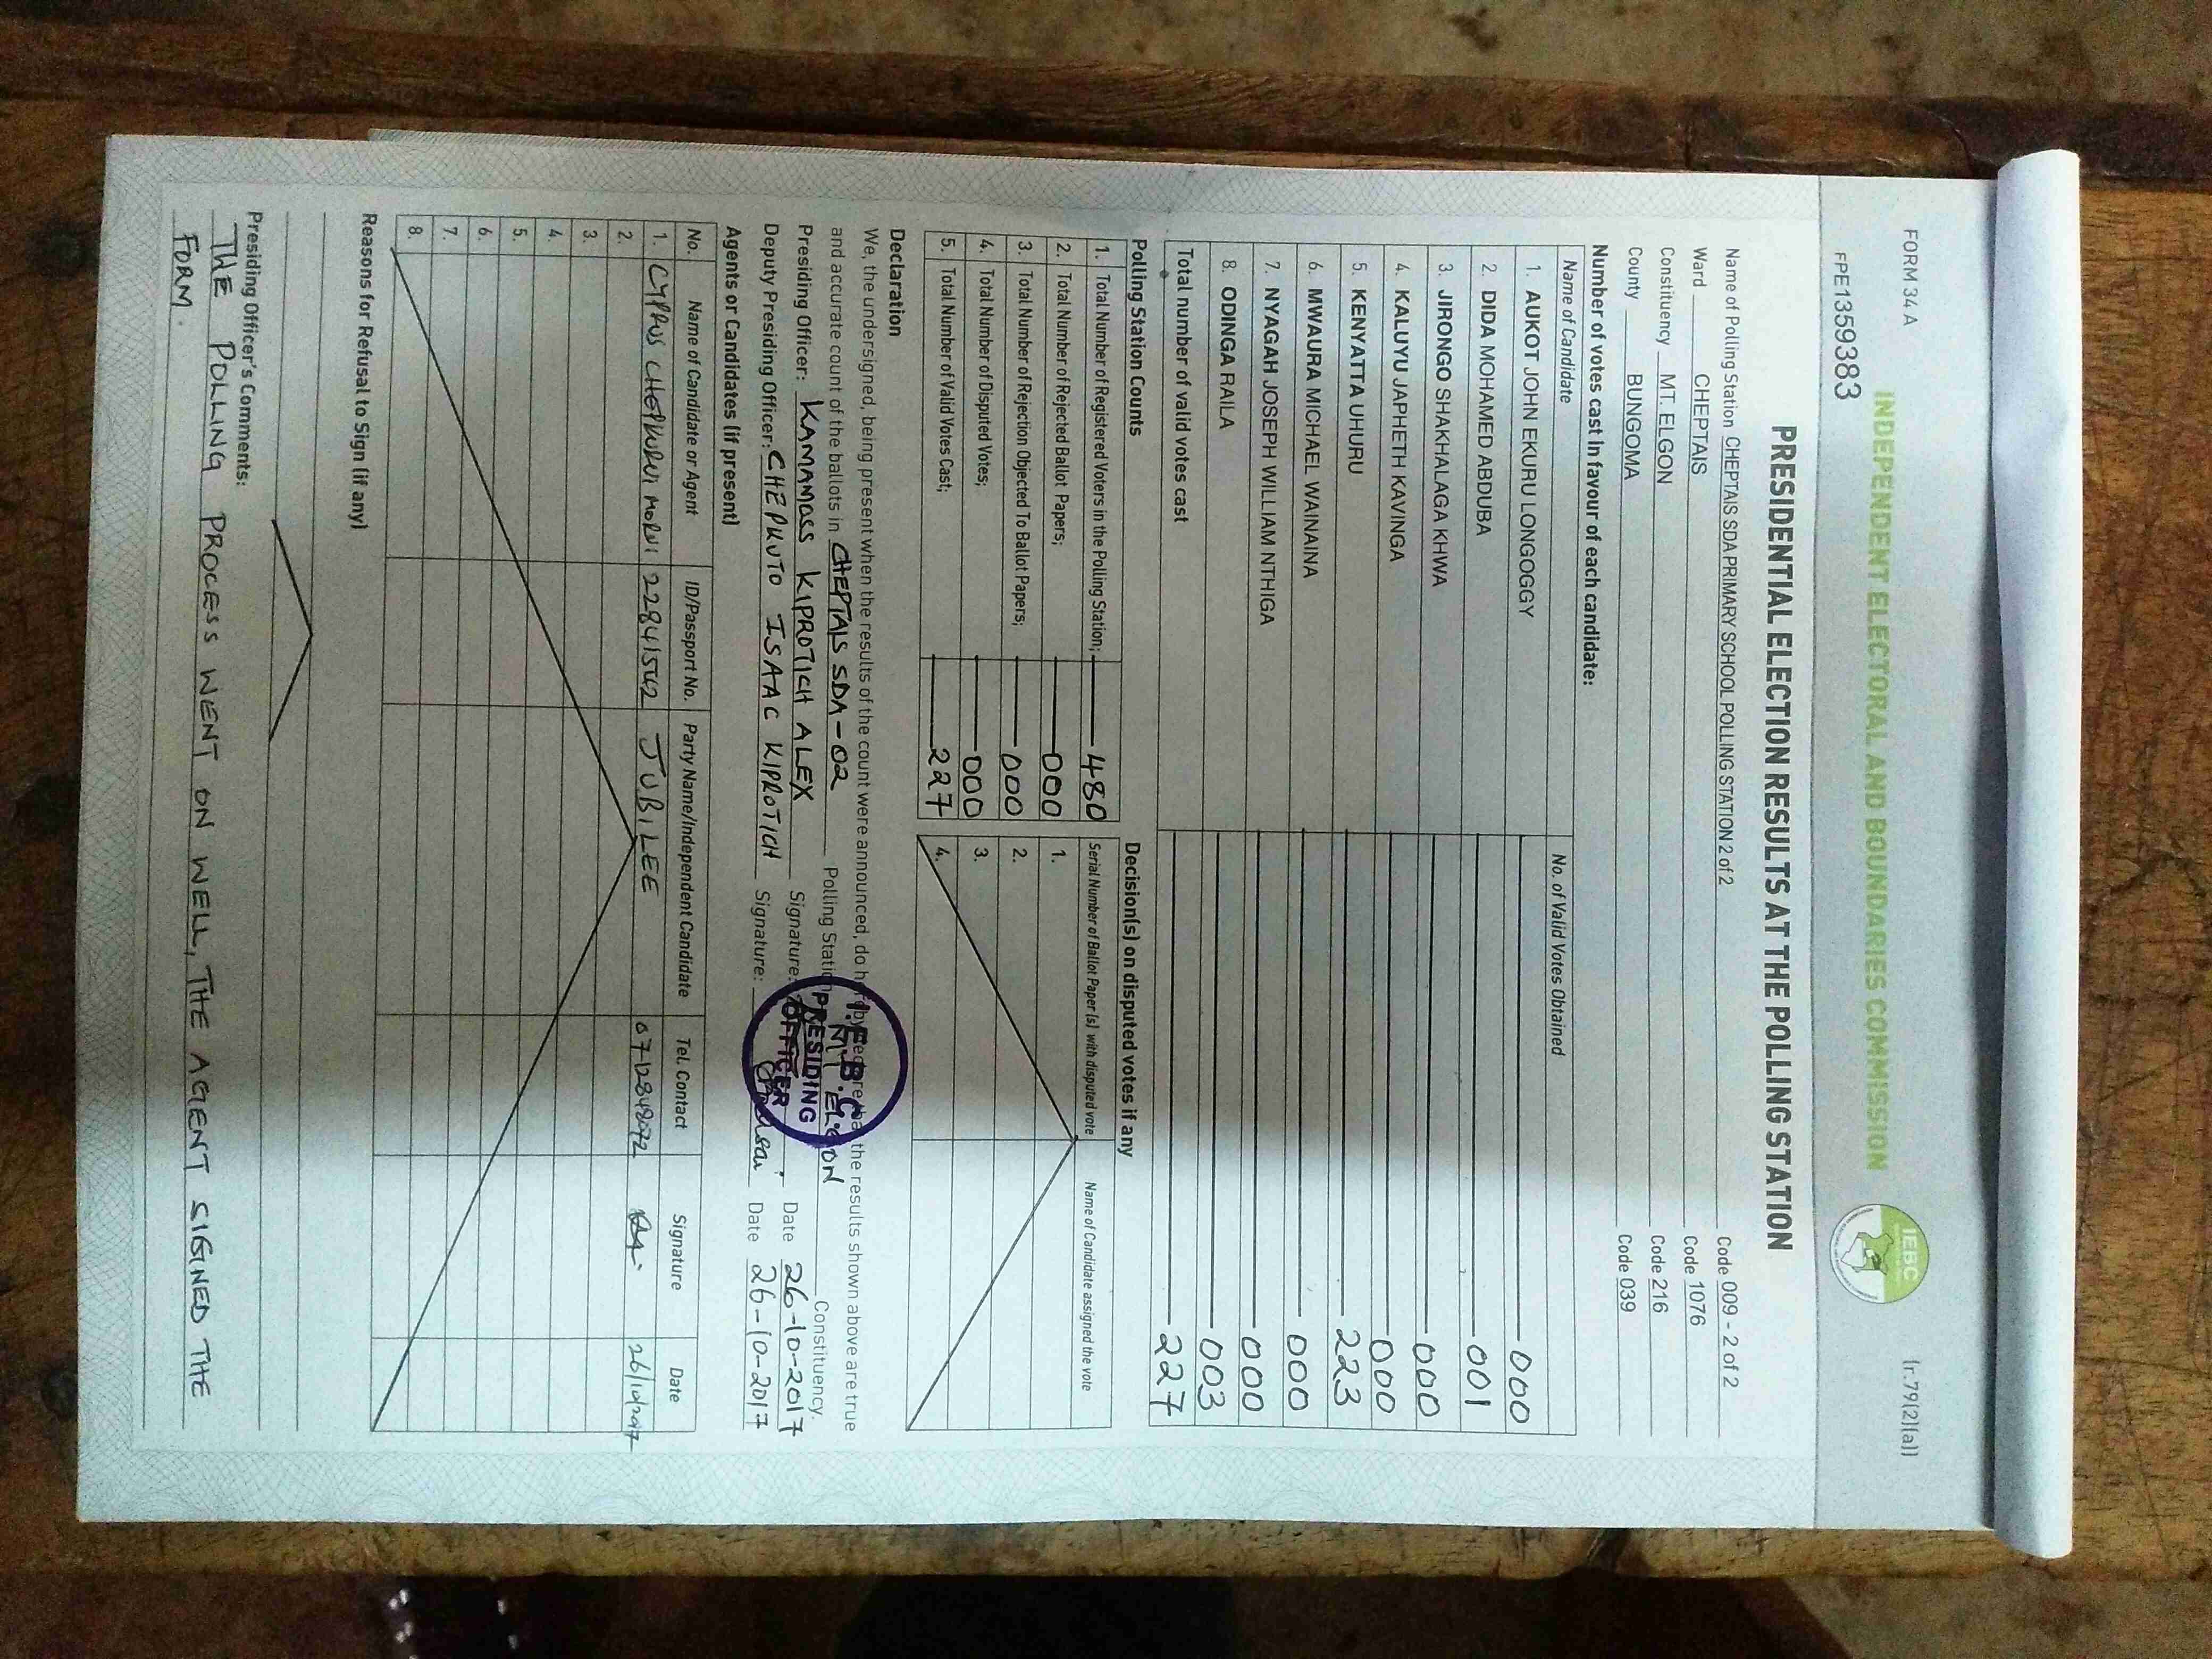 FORM 34 A
(r.79(2)(a))
FPE1359383
INDEPENDENT ELECTORAL AND BOUNDARIES COMMISSION
IEBC
PRESIDENTIAL ELECTION RESULTS AT THE POLLING STATION
Name of Polling Station CHEPTAIS SDA PRIMARY SCHOOL POLLING STATION 2 of 2 Code 009 - 2 of 2
Ward CHEPTAIS Code 1076
Constituency MT. ELGON Code 216
County BUNGOMA Code 039
Number of votes cast in favour of each candidate:
Name of Candidate No. of Valid Votes Obtained
1. AUKOT JOHN EKURU LONGOGGY 000
2. DIDA MOHAMED ABDUBA 001
3. JIRONGO SHAKHALAGA KHWA 000
4. KALUYU JAPHETH KAVINGA 000
5. KENYATTA UHURU 223
6. MWAURA MICHAEL WAINAINA 000
7. NYAGAH JOSEPH WILLIAM NTHIGA 000
8. ODINGA RAILA 003
Total number of valid votes cast 227
Polling Station Counts
1. Total Number of Registered Voters in the Polling Station; 480
2. Total Number of Rejected Ballot Papers; 000
3. Total Number of Rejection Objected To Ballot Papers; 000
4. Total Number of Disputed Votes; 000
5. Total Number of Valid Votes Cast; 227
Decision(s) on disputed votes if any
Serial Number of Ballot Paper(s) with disputed vote Name of Candidate assigned the vote
1.
2.
3.
4.
Declaration
We, the undersigned, being present when the results of the count were announced, do hereby declare that the results shown above are true
and accurate count of the ballots in CHEPTAIS SDA-02 Polling Station MT ELGON Constituency.
Presiding Officer: KAMAMOSS KIPROTICH ALEX Signature: Date 26-10-2017
Deputy Presiding Officer: CHEPKUTO ISAAC KIPROTICH Signature: Date 26-10-2017
I.E.B.C.
PRESIDING
OFFICER
Agents or Candidates (if present)
No. Name of Candidate or Agent ID/Passport No. Party Name/Independent Candidate Tel. Contact Signature Date
1. CYPRUS CHEPKURUI MORNI 22841542 JUBILEE 0712849072 26/10/2017
2.
3.
4.
5.
6.
7.
8.
Reasons for Refusal to Sign (if any)
Presiding Officer's Comments:
THE POLLING PROCESS WENT ON WELL, THE AGENT SIGNED THE
FORM.